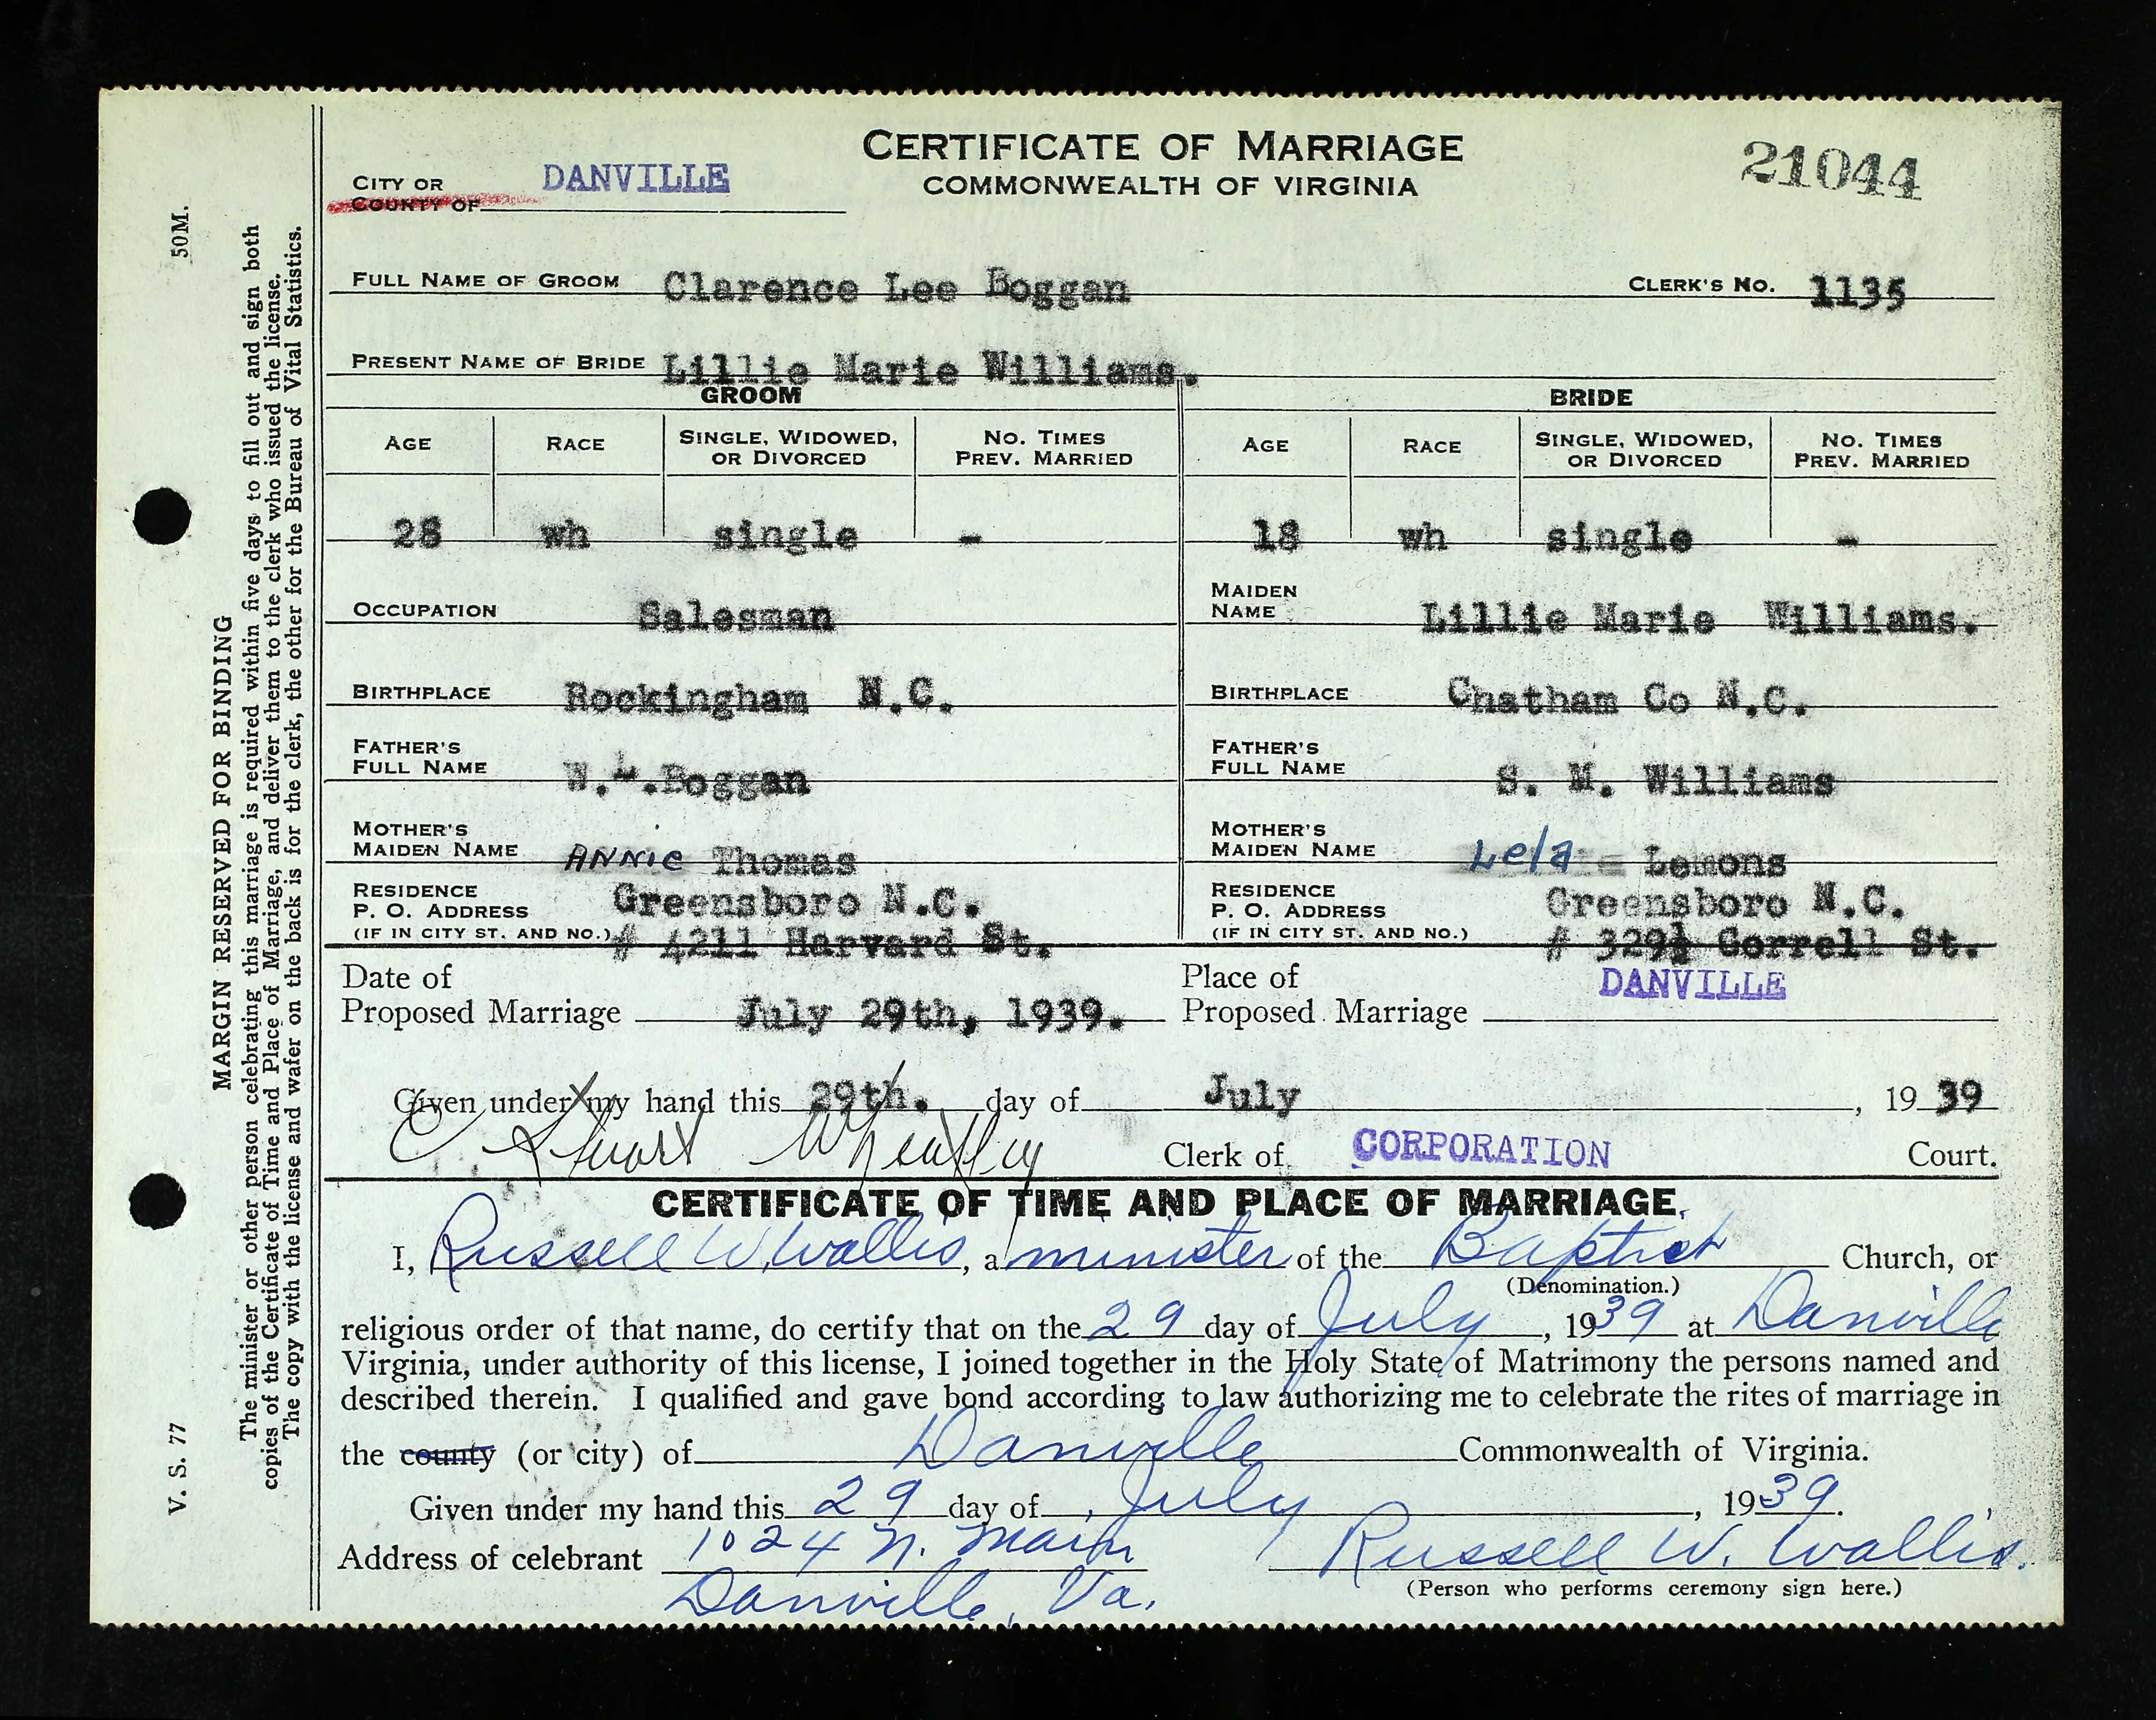 CERTIFICATE OF MARRIAGE
COMMONWEALTH OF VIRGINIA
21044
CITY OR DANVILLE
COUNTY OF
FULL NAME OF GROOM Clarence Lee Boggan CLERK'S NO. 1135
PRESENT NAME OF BRIDE Lillie Marie Williams.
GROOM BRIDE
AGE RACE SINGLE, WIDOWED, OR DIVORCED NO. TIMES PREV. MARRIED AGE RACE SINGLE, WIDOWED, OR DIVORCED NO. TIMES PREV. MARRIED
28 wh single - 18 wh single -
OCCUPATION Salesman MAIDEN NAME Lillie Marie Williams.
BIRTHPLACE Rockingham N.C. BIRTHPLACE Chatham Co N.C.
FATHER'S FULL NAME W.L.Boggan FATHER'S FULL NAME S. M. Williams
MOTHER'S MAIDEN NAME ANNIE Thomas MOTHER'S MAIDEN NAME Lela Lemons
RESIDENCE P. O. ADDRESS Greensboro N.C. RESIDENCE P. O. ADDRESS Greensboro N.C.
(IF IN CITY ST. AND NO.) # 4211 Harvard St. (IF IN CITY ST. AND NO.) # 329½ Correll St.
Date of Proposed Marriage July 29th, 1939. Place of Proposed Marriage DANVILLE
Given under my hand this 29th. day of July, 1939
C Stuart Wheatley Clerk of CORPORATION Court.
CERTIFICATE OF TIME AND PLACE OF MARRIAGE.
I, Russell W. Wallis, a minister of the Baptist Church, or
(Denomination.)
religious order of that name, do certify that on the 29 day of July, 1939 at Danville
Virginia, under authority of this license, I joined together in the Holy State of Matrimony the persons named and
described therein. I qualified and gave bond according to law authorizing me to celebrate the rites of marriage in
the county (or city) of Danville Commonwealth of Virginia.
Given under my hand this 29 day of July, 1939.
Address of celebrant 1024 N. Main Russell W. Wallis.
Danville, Va. (Person who performs ceremony sign here.)
V. S. 77 50M.
MARGIN RESERVED FOR BINDING
The minister or other person celebrating this marriage is required within five days to fill out and sign both
copies of the Certificate of Time and Place of Marriage, and deliver them to the clerk who issued the license.
The copy with the license and wafer on the back is for the clerk, the other for the Bureau of Vital Statistics.